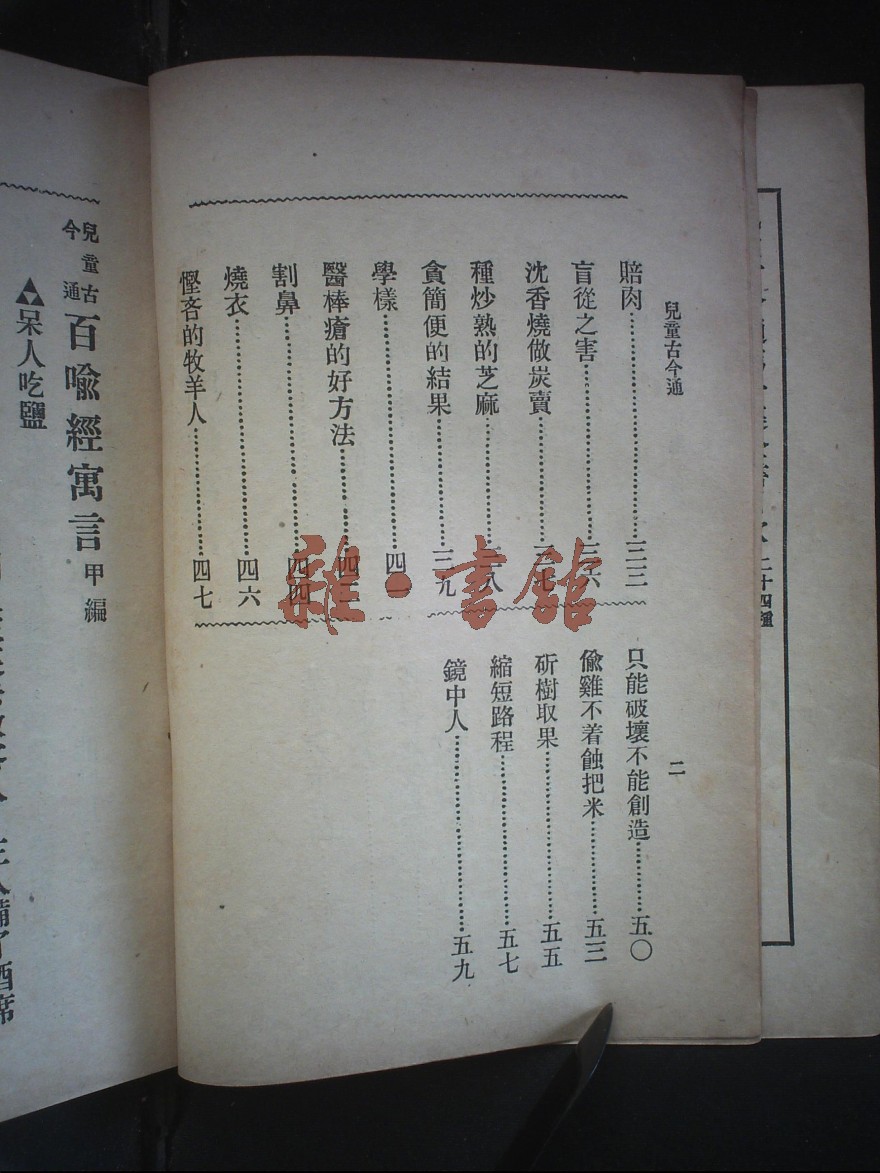 兒童古今通
二
賠肉……三三
盲從之害……三六
沈香燒做炭賣……三七
種炒熟的芝麻……三八
貪簡便的結果……三九
學樣……四一
醫棒瘡的好方法……四二
割鼻……四四
燒衣……四六
慳吝的牧羊人……四七
只能破壞不能創造……五〇
偸雞不着蝕把米……五三
斫樹取果……五五
縮短路程……五七
鏡中人……五九
兒童古今通
百喩經寓言 甲編
呆人吃鹽
備了酒席
二十四種
雅·書館